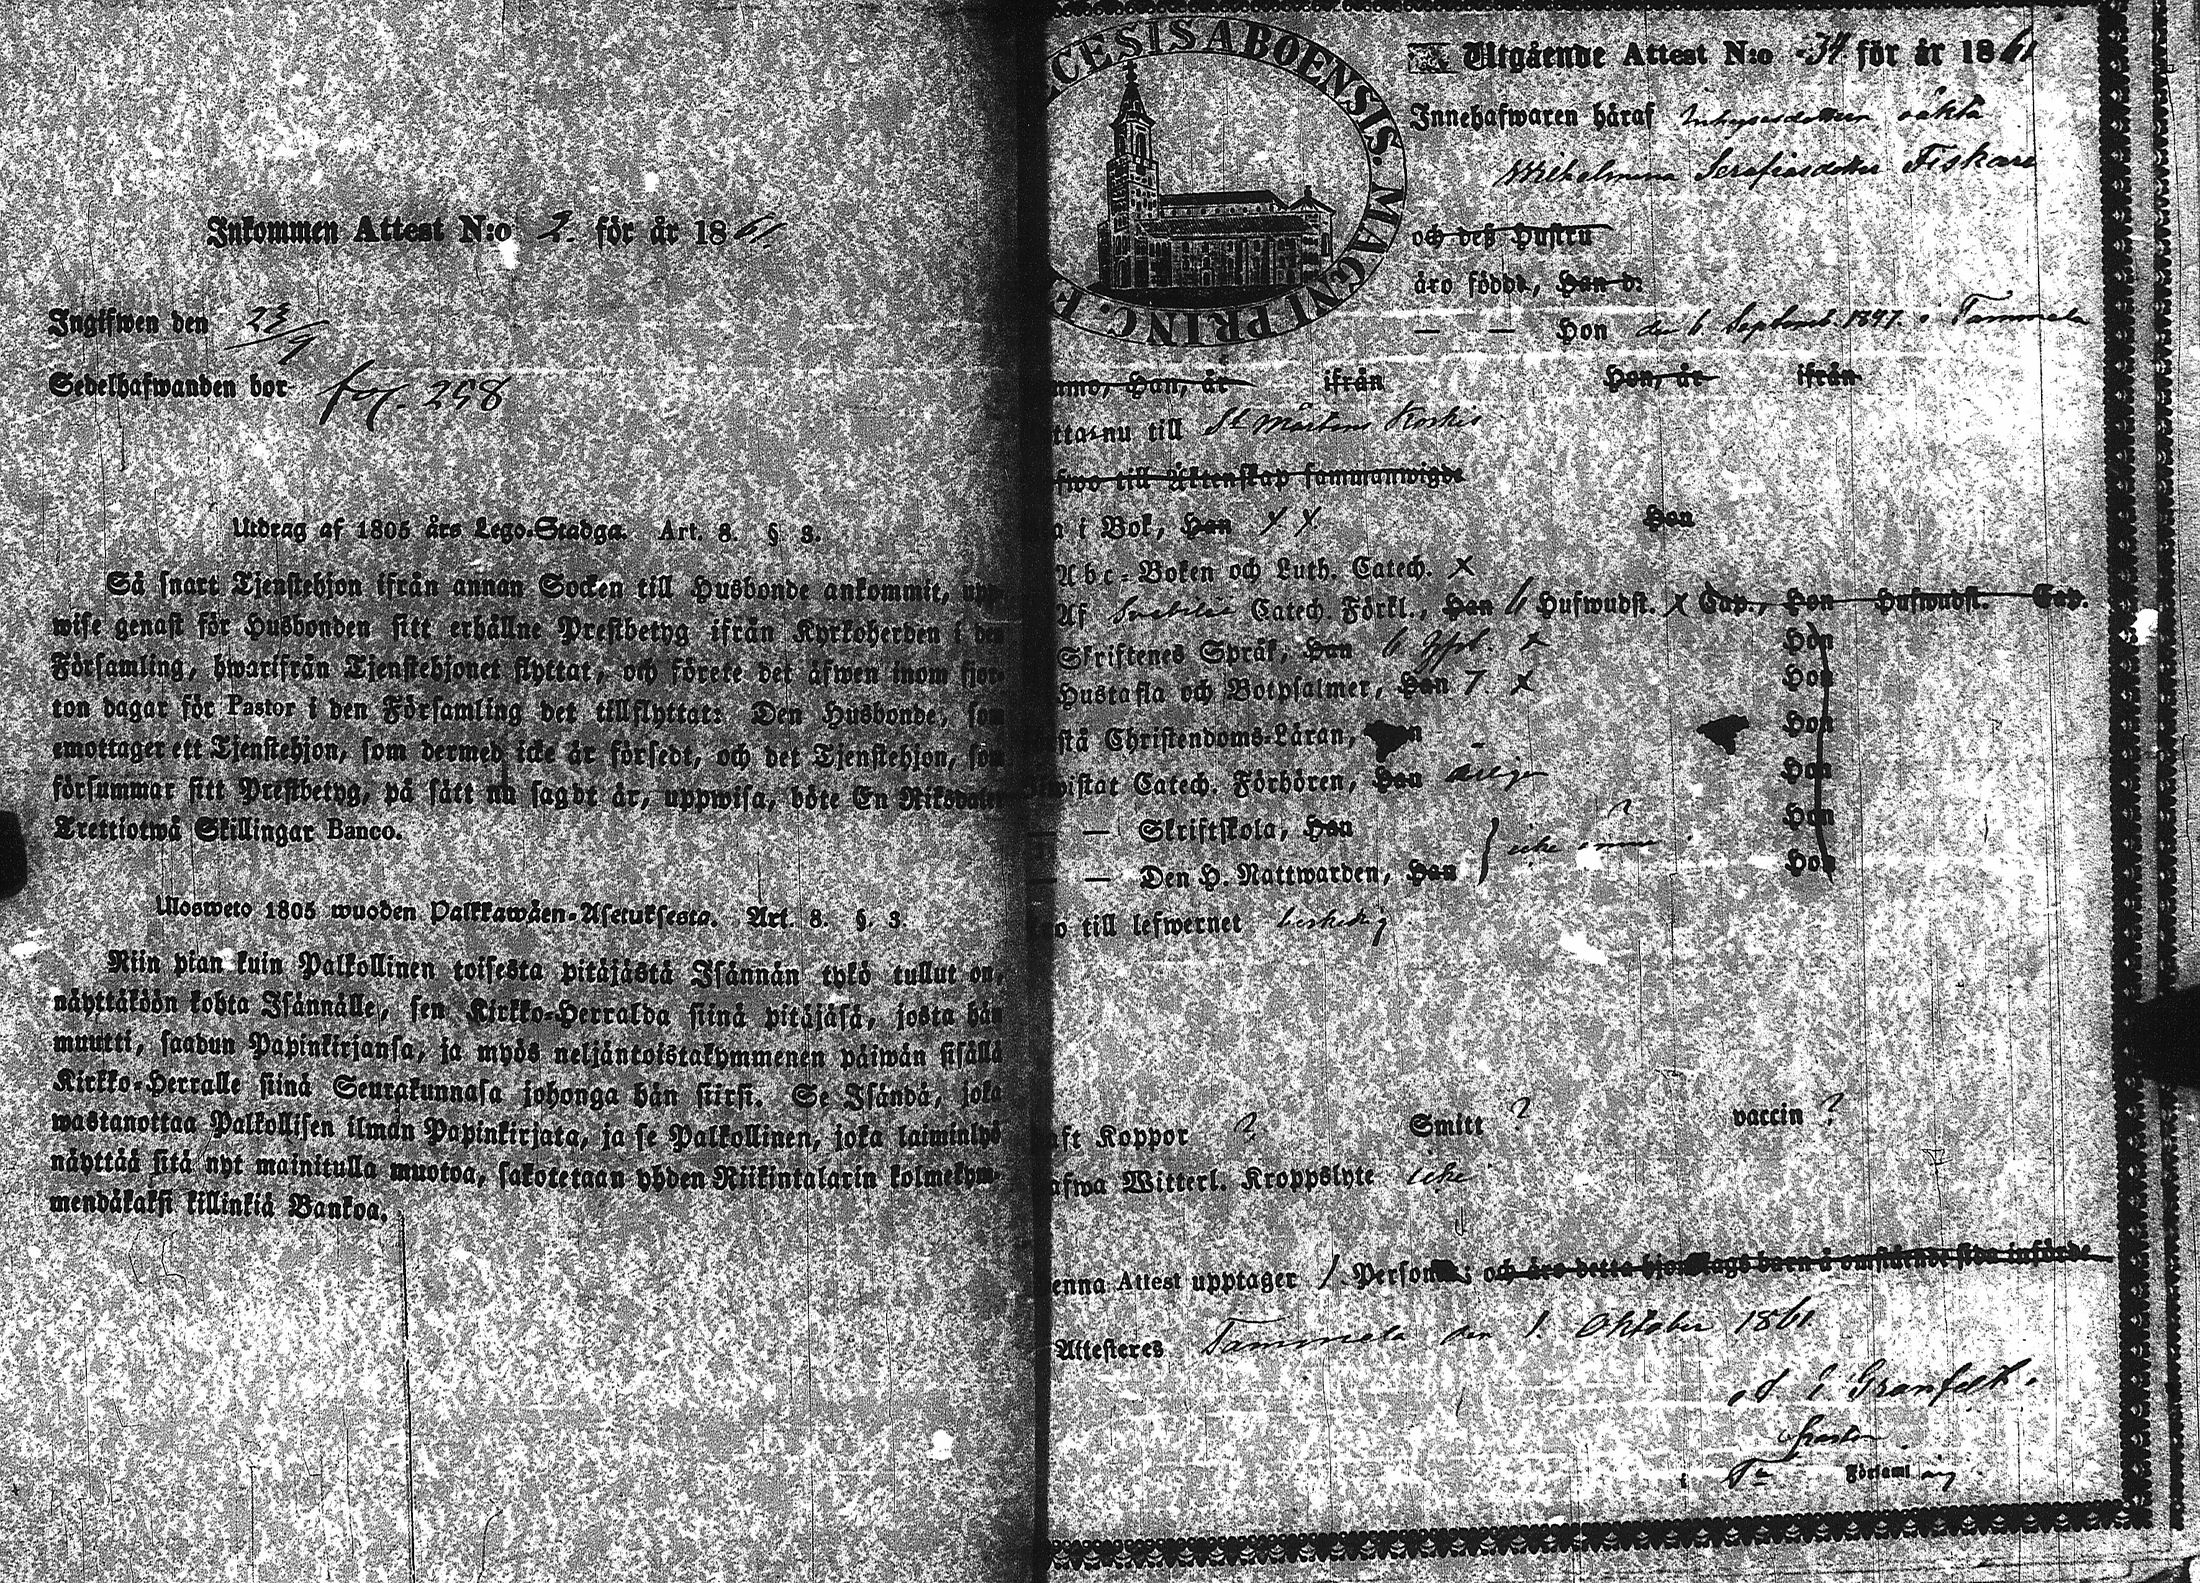 Inkommen Attest N:o 2. för år 1861.
Ingifwen den
Sedelhafwanden bor fog. 258
Utdrag af 1805 års Lego-Stadga. Art. 8. § 3.
Så snart Tjenstehjon ifrån annan Socken till Husbonde ankommit, upp-
wise genast för Husbonden sitt erhållne Prestbetyg ifrån Kyrkoherden i den
Församling, hwarifrån Tjenstehjonet flyttat, och förete det äfwen inom fjor-
ton dagar för Pastor i den Församling det tillflyttat: Den Husbonde, som
emottager ett Tjenstehjon, som dermed icke är försedt, och det Tjenstehjon, som
försummar sitt Prestbetyg, på sätt nu sagdt är, uppwisa, böte En Riksdaler
Trettiotwå Skillingar Banco.
Ulosweto 1805 wuoden Palkkawäen-Asetuksesta. Art. 8. §. 3.
Niin pian kuin Palkollinen toisesta pitäjästä Isännän tykö tullut on,
näyttäköön kohta Isännälle, sen Kirkko-Herralda siinä pitäjäsä, josta hän
muutti, saadun Papinkirjansa, ja myös neljäntoistakymmenen päiwän sisällä
Kirkko-Herralle siinä Seurakunnasa johonga hän siirsi. Se Isändä, joka
wastanottaa Palkollisen ilman Papinkirjata, ja se Palkollinen, joka laiminlyö
näyttää sitä nyt mainitulla muotoa, sakotetaan yhden Riikintalarin kolmekym-
mendäkaksi killinkiä Bankoa.
CESIS ABOENSIS. MAGNI PRINC. F
Utgående Attest N:o 34 för år 1861
Innehafwaren häraf oäkta
Wilhelmina Serafiasdotter Fiskare
och deß Hustru
äro födde, Han d:
— — Hon den 6 Septemb. 1847. i Tammela
mmo, Han, är ifrån Hon, är ifrån
tta nu till St Mårtens Koskis
fwo till Äktenskap sammanwigde
a i Bok, Han Hon
Abc-Boken och Luth. Catech. x
Af Svebilii Catech. Förkl., Han 6 Hufwudst. x Cap., Hon Hufwudst. Cap.
Skriftenes Språk, Han 6 x Hon
Hustafla och Botpsalmer, Han 7. x Hon
stå Christendoms-Läran, Han - Hon
wistat Catech. Förhören, Han Hon
— — Skriftskola, Han Hon
— — Den H. Nattwarden, Han icke ännu Hon
o till lefwernet beskedlig
aft Koppor ? Smitt ? vaccin ?
afwa Witterl. Kroppslyte icke
enna Attest upptager 1 Person; och äro detta hjonelags barn å omstående sida införde
Attesteres Tammela den 1. Oktober 1861
Granfelt.
Pastor
i Ta Församling